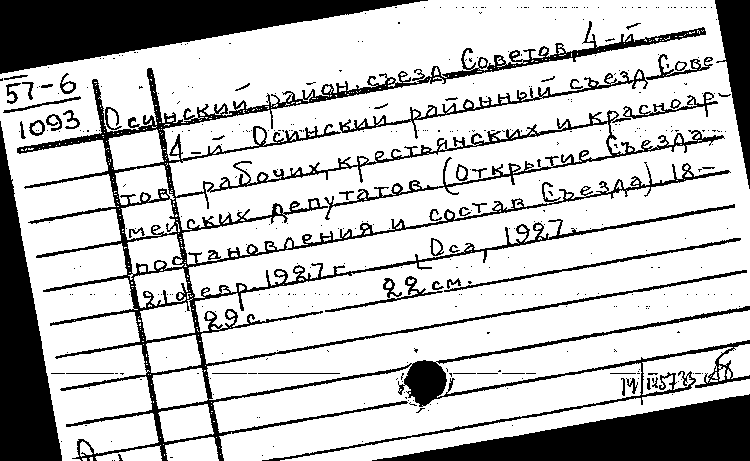 57-6
1093
Осинский район. съезд Советов, 4-й
4-й Осинский районный съезд Сове-
тов рабочих, крестьянских и красноар-
мейских депутатов. (Открытие Съезда,
постановления и состав Съезда). 18-
21 февр. 1927 г. [Оса, 1927.
29 с. 22 см.